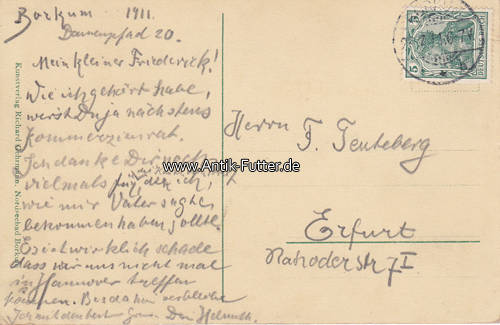 Borkum 1911.
Damenpfad 20.
Mein kleiner Friederich!
Wie ich gehört habe,
wirst Du ja nächstens
Kommerzienrat.
Ich danke Dir noch
vielmals für
wie mir Vater sagte
bekommen haben sollte.
Es ist wirklich schade
dass wir uns nicht mal
in Hannover treffen
können. Bis dahin verbleibe
Ich mit den besten Dein Helmuth.
Kunstverlag Richard Nordseebad Borkum
5 DEUTSCHES REICH 5
www.Antik-Futter.de
Herrn F. Teuteberg
Erfurt
I